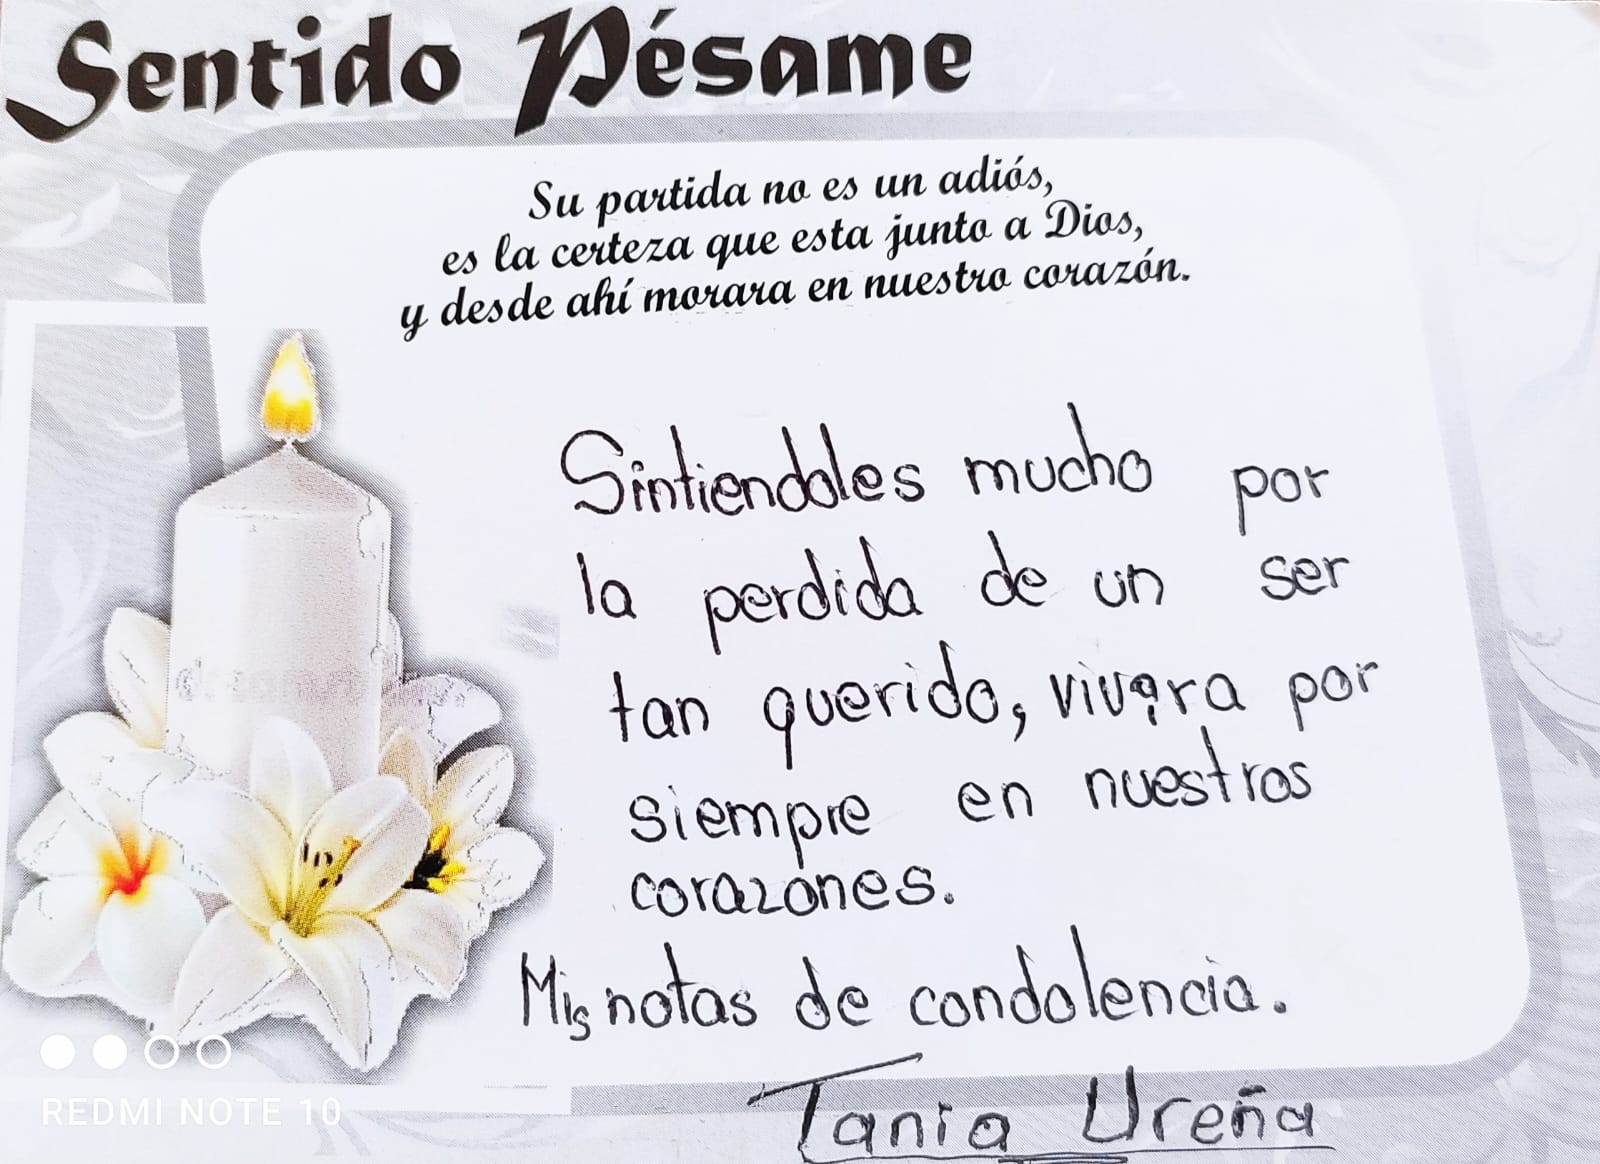 Sentido Pésame
Su partida no es un adiós,
es la certeza que esta junto a Dios,
y desde ahí morara en nuestro corazón.
Sintiendoles mucho por
la perdida de un ser
tan querido, vivira por
siempre en nuestros
corazones.
Mis notas de condolencia.
Tania Ureña
REDMI NOTE 10